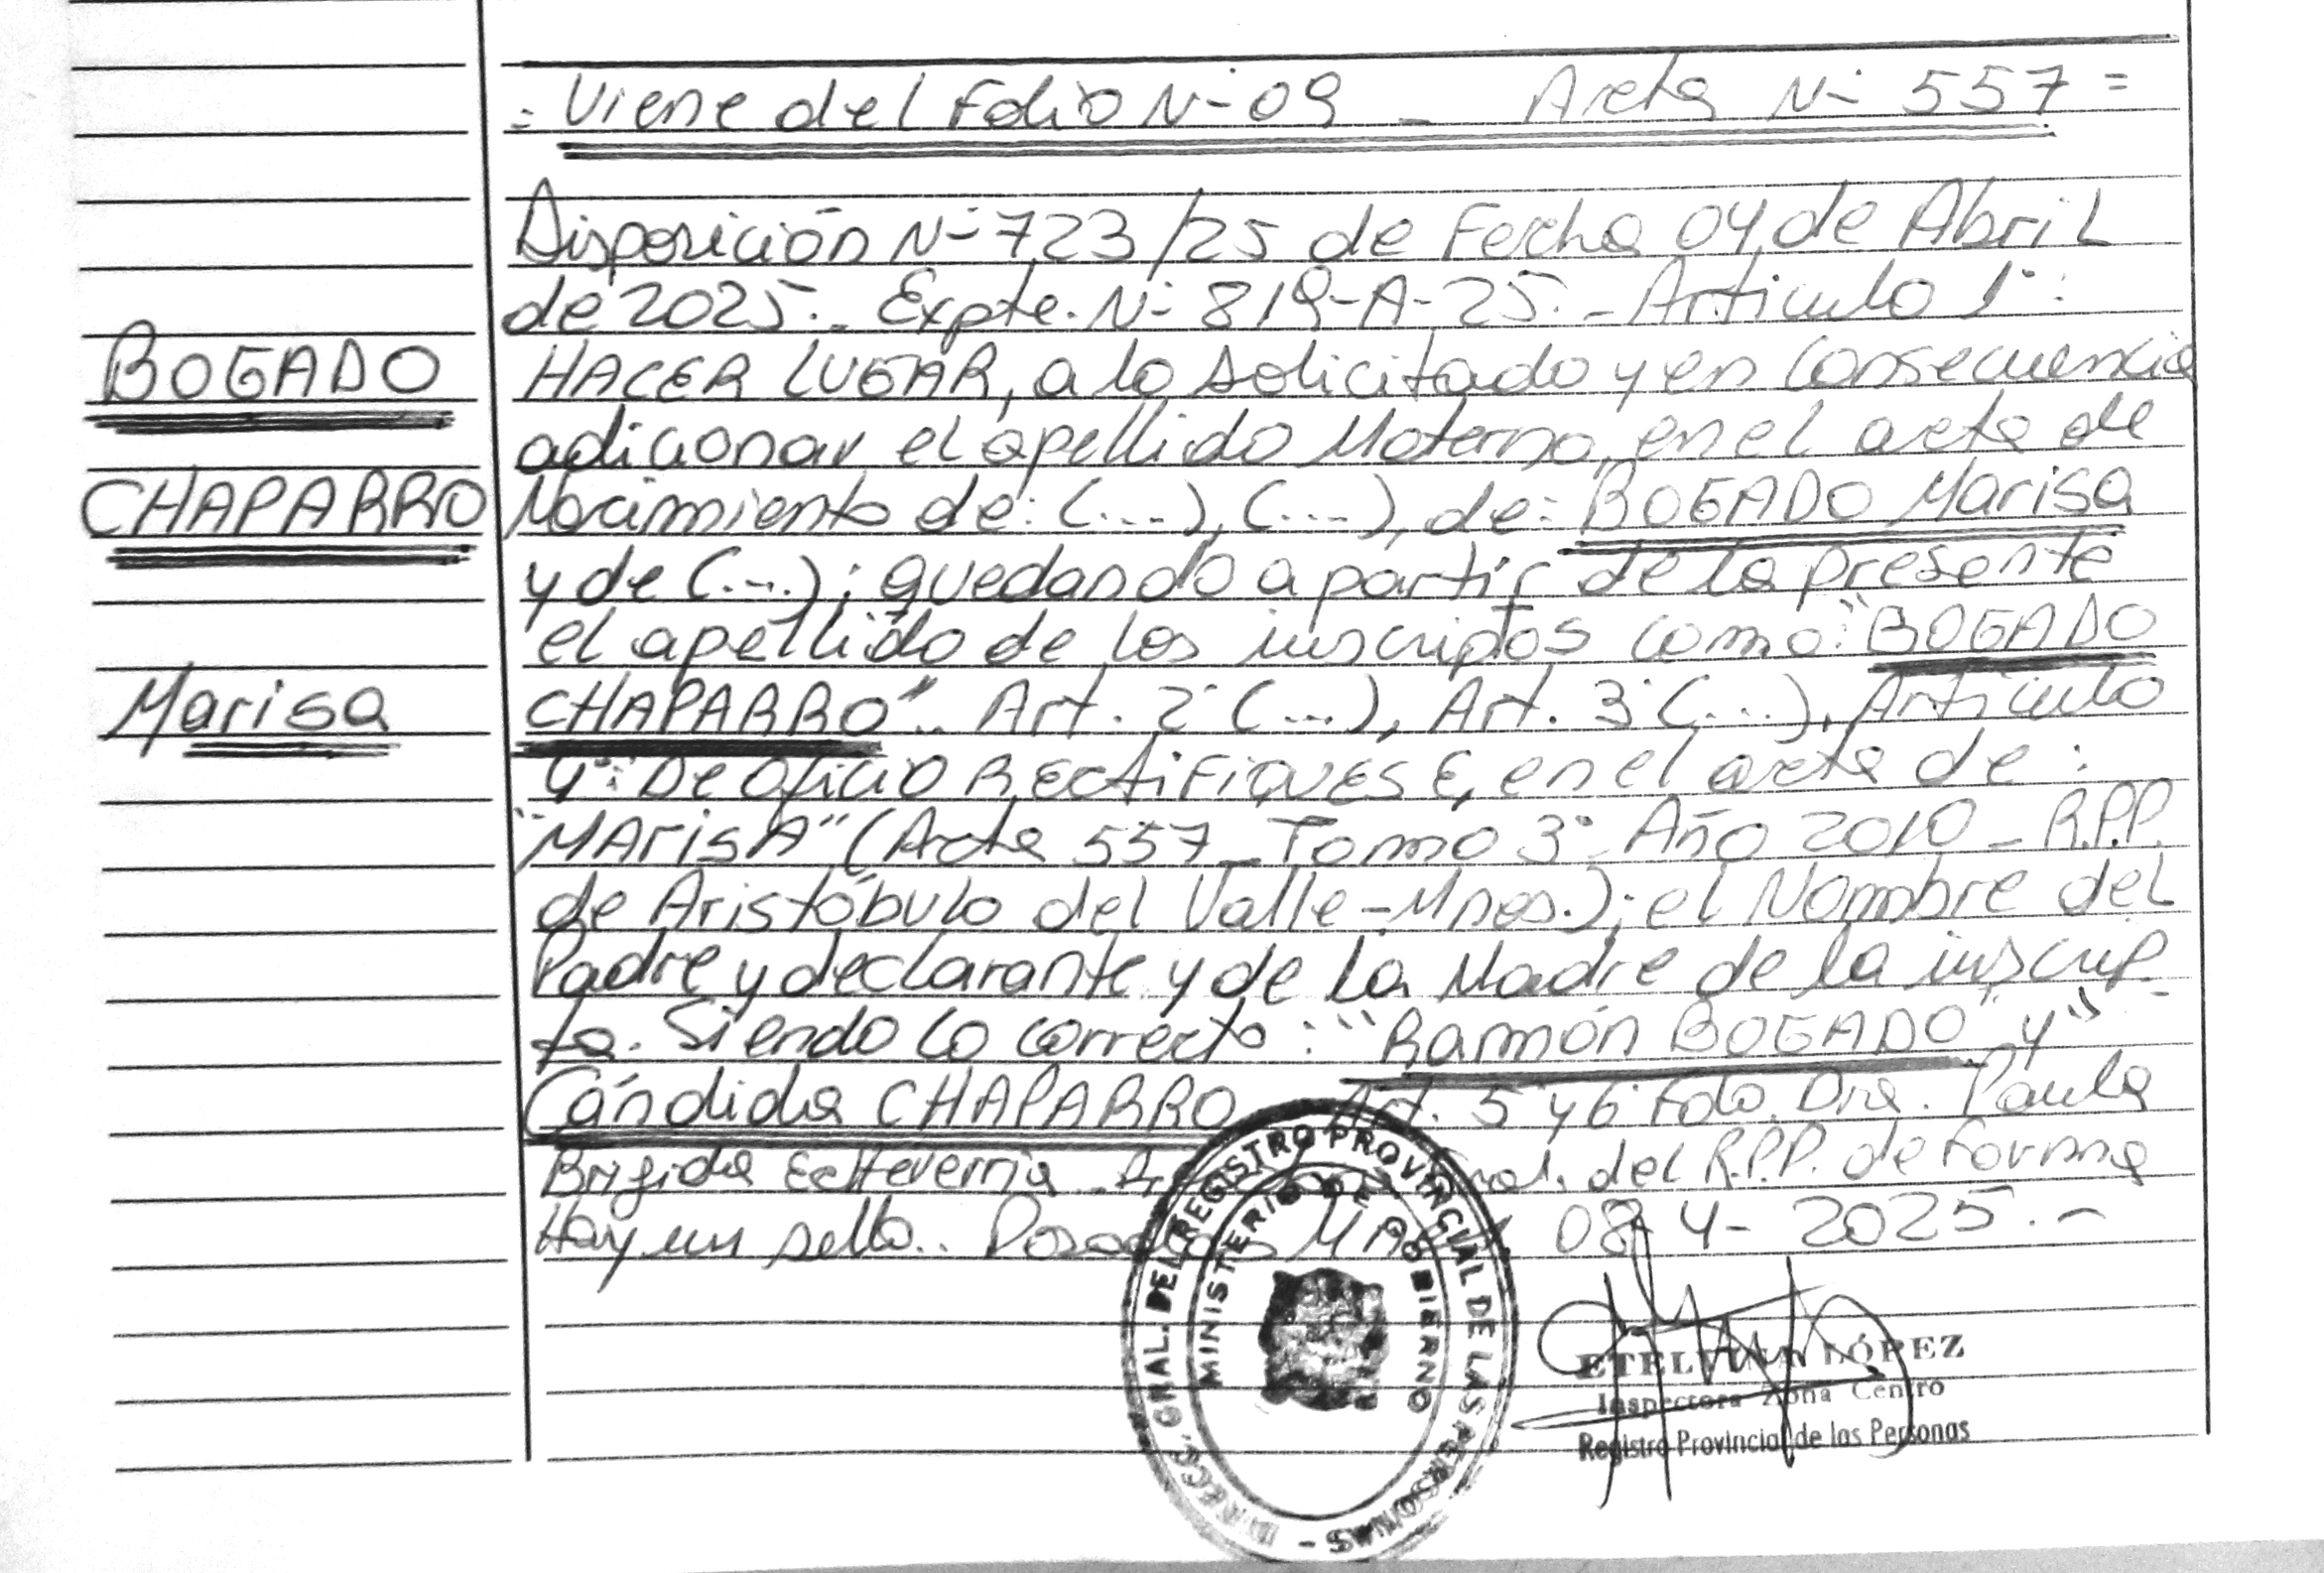 = Viene del Folio N- 09 - Acta N- 557 =
Disposición N- 723/25 de Fecha 04 de Abril
de 2025.- Expte. N- 819-A-25.- Artículo 1°:
HACER LUGAR, a lo solicitado y en consecuencia
adicionar el apellido Materno, en el acta de
Nacimiento de: (...), (...), de: BOGADO Marisa
y de (...); quedando a partir de la presente
el apellido de los inscriptos como: "BOGADO
CHAPARRO".. Art. 2° (...), Art. 3° (...), Artículo
4°: De oficio RECtiFiQUESE, en el acta de:
"MArisA" (Acta 557 - Tomo 3° Año 2010 - R.P.P.
de Aristóbulo del Valle - Mnes.); el Nombre del
Padre y declarante y de la Madre de la inscrip-
ta. Siendo lo correcto: "Ramón BOGADO" y "
Cándida CHAPARRO Art. 5° y 6° Fdo. Dra. Paula
Brigida Echeverria del R.P.P. de Forma
Hay un sello.. Posadas 08 4- 2025.-
BOGADO
CHAPARRO
Marisa
DIRECC. GRAL. DEL REGISTRO PROVINCIAL DE LAS PERSONAS -
MINISTERIO DE GOBIERNO
ETELVINA LÓPEZ
Inspectora Zona Centro
Registro Provincial de las Personas